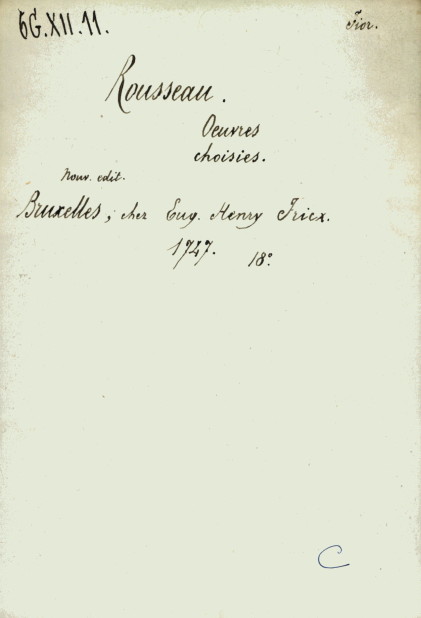 6G.XII.11.
Fior.
Rousseau.
Oeuvres
choisies.
Nouv. edit.
Bruxelles, chez Eug. Henry Fricx.
1747. 18°.
C